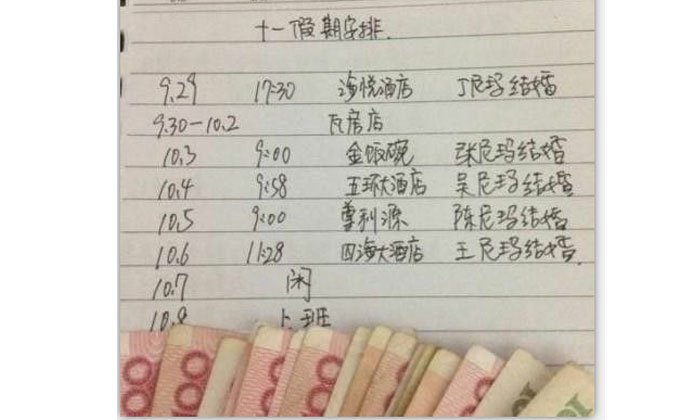 十一假期安排.
9.29 17:30 海悦酒店 丁尼玛结婚
9.30-10.2 瓦房店
10.3 9:00 金饭碗 张尼玛结婚
10.4 9:58 五环大酒店 吴尼玛结婚
10.5 9:00 尊利源 陈尼玛结婚
10.6 11:28 四海大酒店 王尼玛结婚.
10.7 闲
10.8 上班
100 100 100 100